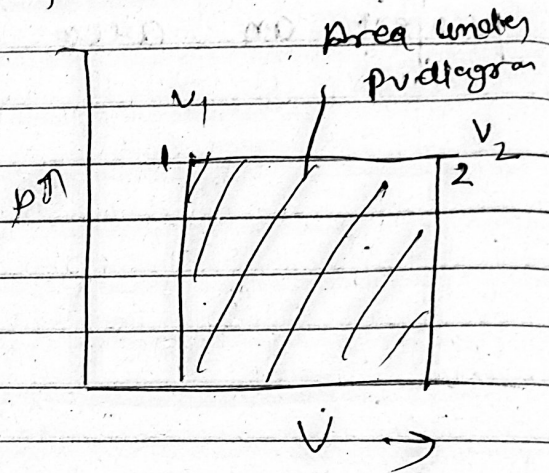 Area under
PV diagram
V1
1
V2
2
P↑
V →